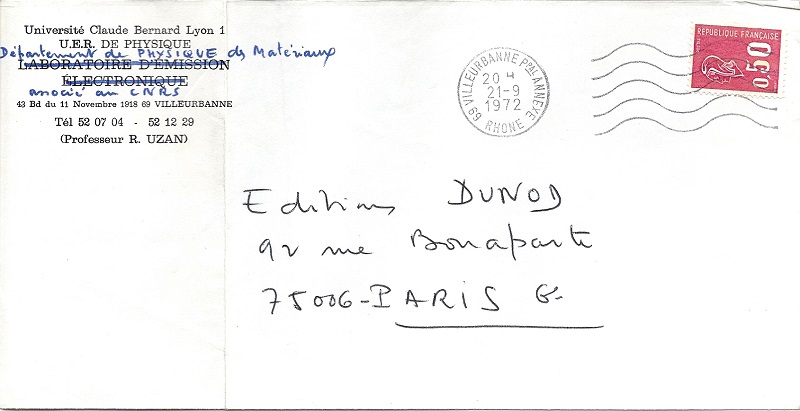 Université Claude Bernard Lyon 1
U.E.R. DE PHYSIQUE
Département de PHYSIQUE des Matériaux
LABORATOIRE D'EMISSION
ÉLECTRONIQUE
associé au CNRS
43 Bd du 11 Novembre 1918 69 VILLEURBANNE
Tél 52 07 04 - 52 12 29
(Professeur R. UZAN)
69 VILLEURBANNE Ppal ANNEXE
20 H
21-9
1972
RHONE
REPUBLIQUE FRANÇAISE
0,50
Editions DUNOD
92 rue Bonaparte
75006-PARIS 6.